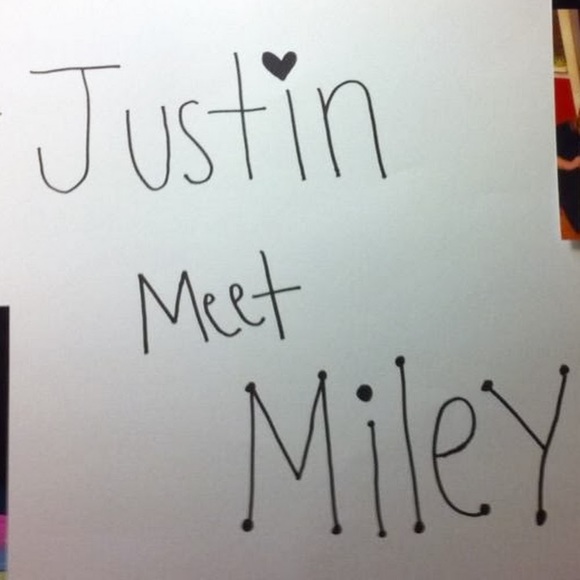 Justin
Meet
Miley